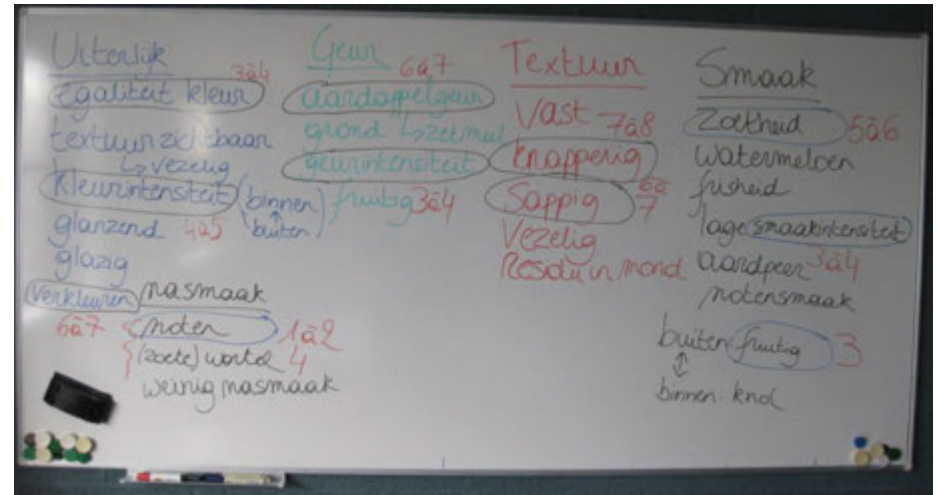 Uiterlijk
3à4
egaliteit kleur
textuur zichtbaar
↳ vezelig
kleurintensiteit (binnen
buiten)
glanzend 4à5
glazig
verkleuren
6à7
nasmaak
noten 1à2
(zoete) wortel 4
weinig nasmaak
Geur
6à7
aardappelgeur
grond ↳ zetmul
geurintensiteit
fruitig 3à4
Textuur
Vast 7à8
knapperig
Sappig 6à7
Vezelig
Residu in mond
Smaak
Zoetheid 5à6
watermeloen
frisheid
lage smaakintensiteit
aardpeer 3à4
notensmaak
buiten: fruitig 3
↕
binnen: knol